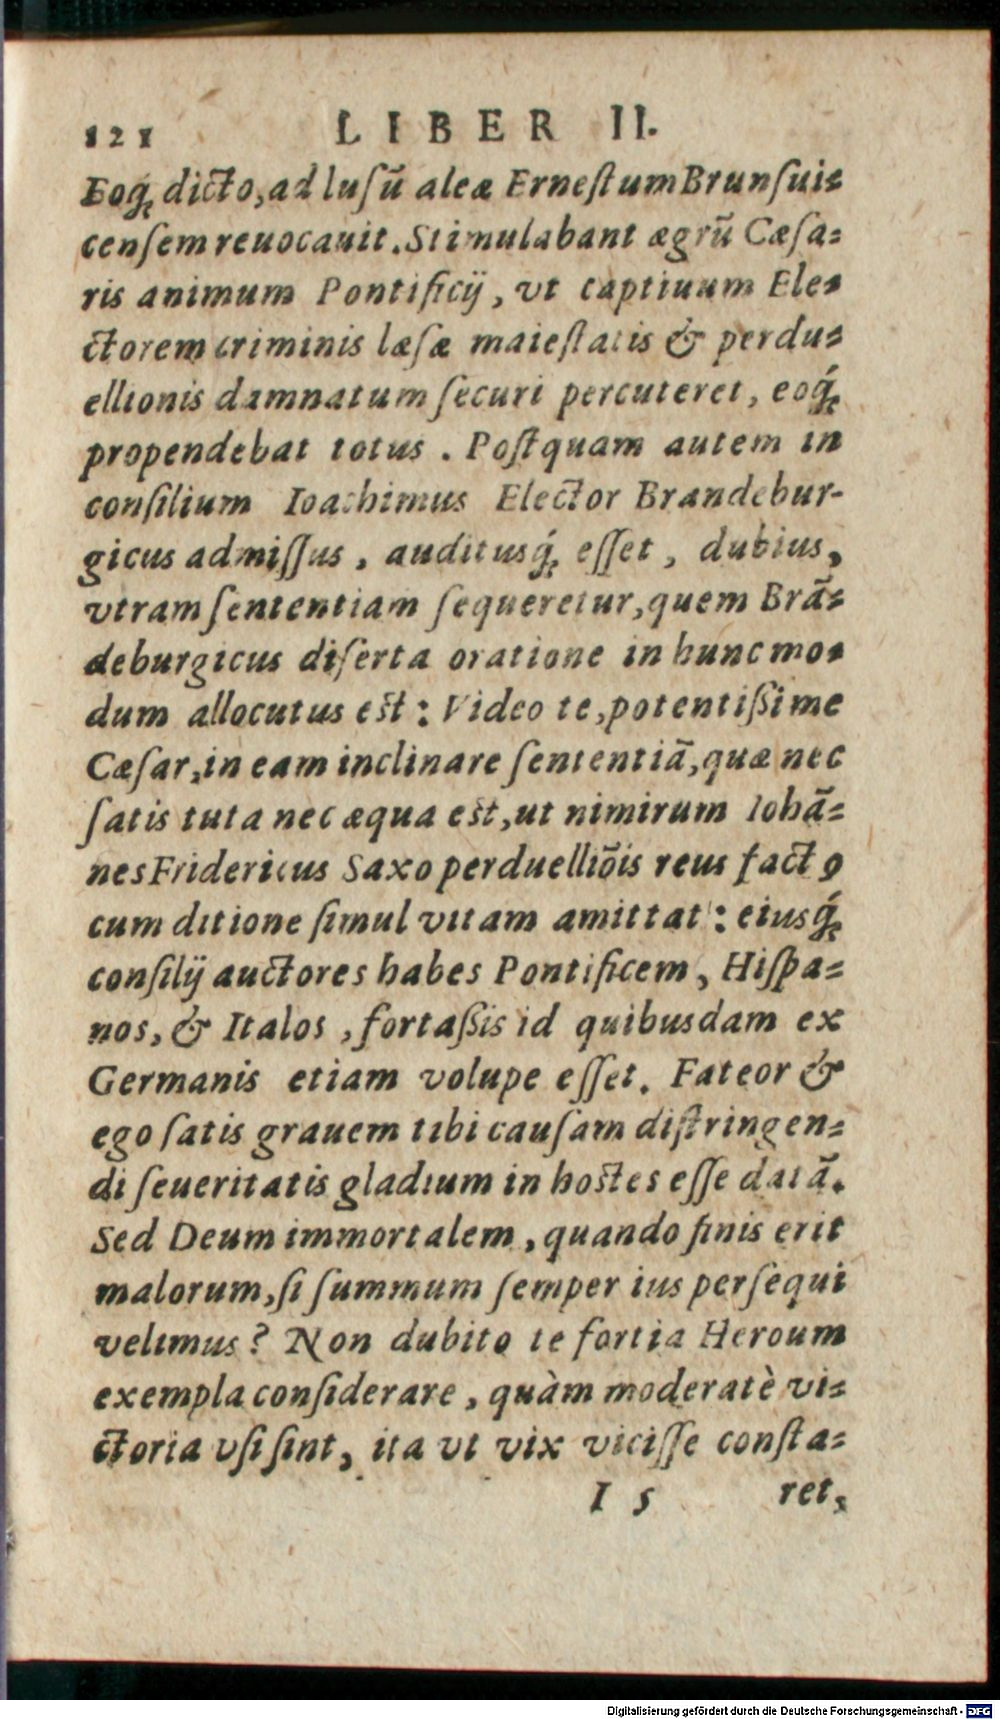 121 LIBER II.
Eoq́; dicto, ad lusũ aleæ Ernestum Brunsui=
censem reuocauit. Stimulabant ægrũ Cæsa=
ris animum Pontificij, vt captiuum Ele=
ctorem criminis læsæ maiestatis & perdu=
ellionis damnatum securi percuteret, eoq́;
propendebat totus. Postquam autem in
consilium Ioachimus Elector Brandebur-
gicus admissus, auditusq́; esset, dubius,
vtram sententiam sequeretur, quem Brã=
deburgicus diserta oratione in hunc mo=
dum allocutus est: Video te, potentißime
Cæsar, in eam inclinare sententiã, quæ nec
satis tuta nec æqua est, ut nimirum Iohã=
nes Fridericus Saxo perduelliõis reus factꝰ
cum ditione simul vitam amittat: eiusq́;
consilij auctores habes Pontificem, Hispa=
nos, & Italos, fortaßis id quibusdam ex
Germanis etiam volupe esset. Fateor &
ego satis grauem tibi causam distringen=
di seueritatis gladium in hostes esse datã.
Sed Deum immortalem, quando finis erit
malorum, si summum semper ius persequi
velimus? Non dubito te fortia Heroum
exempla considerare, quàm moderatè vi=
ctoria vsi sint, ita vt vix vicisse consta=
I 5 ret,
Digitalisierung gefördert durch die Deutsche Forschungsgemeinschaft - DFG